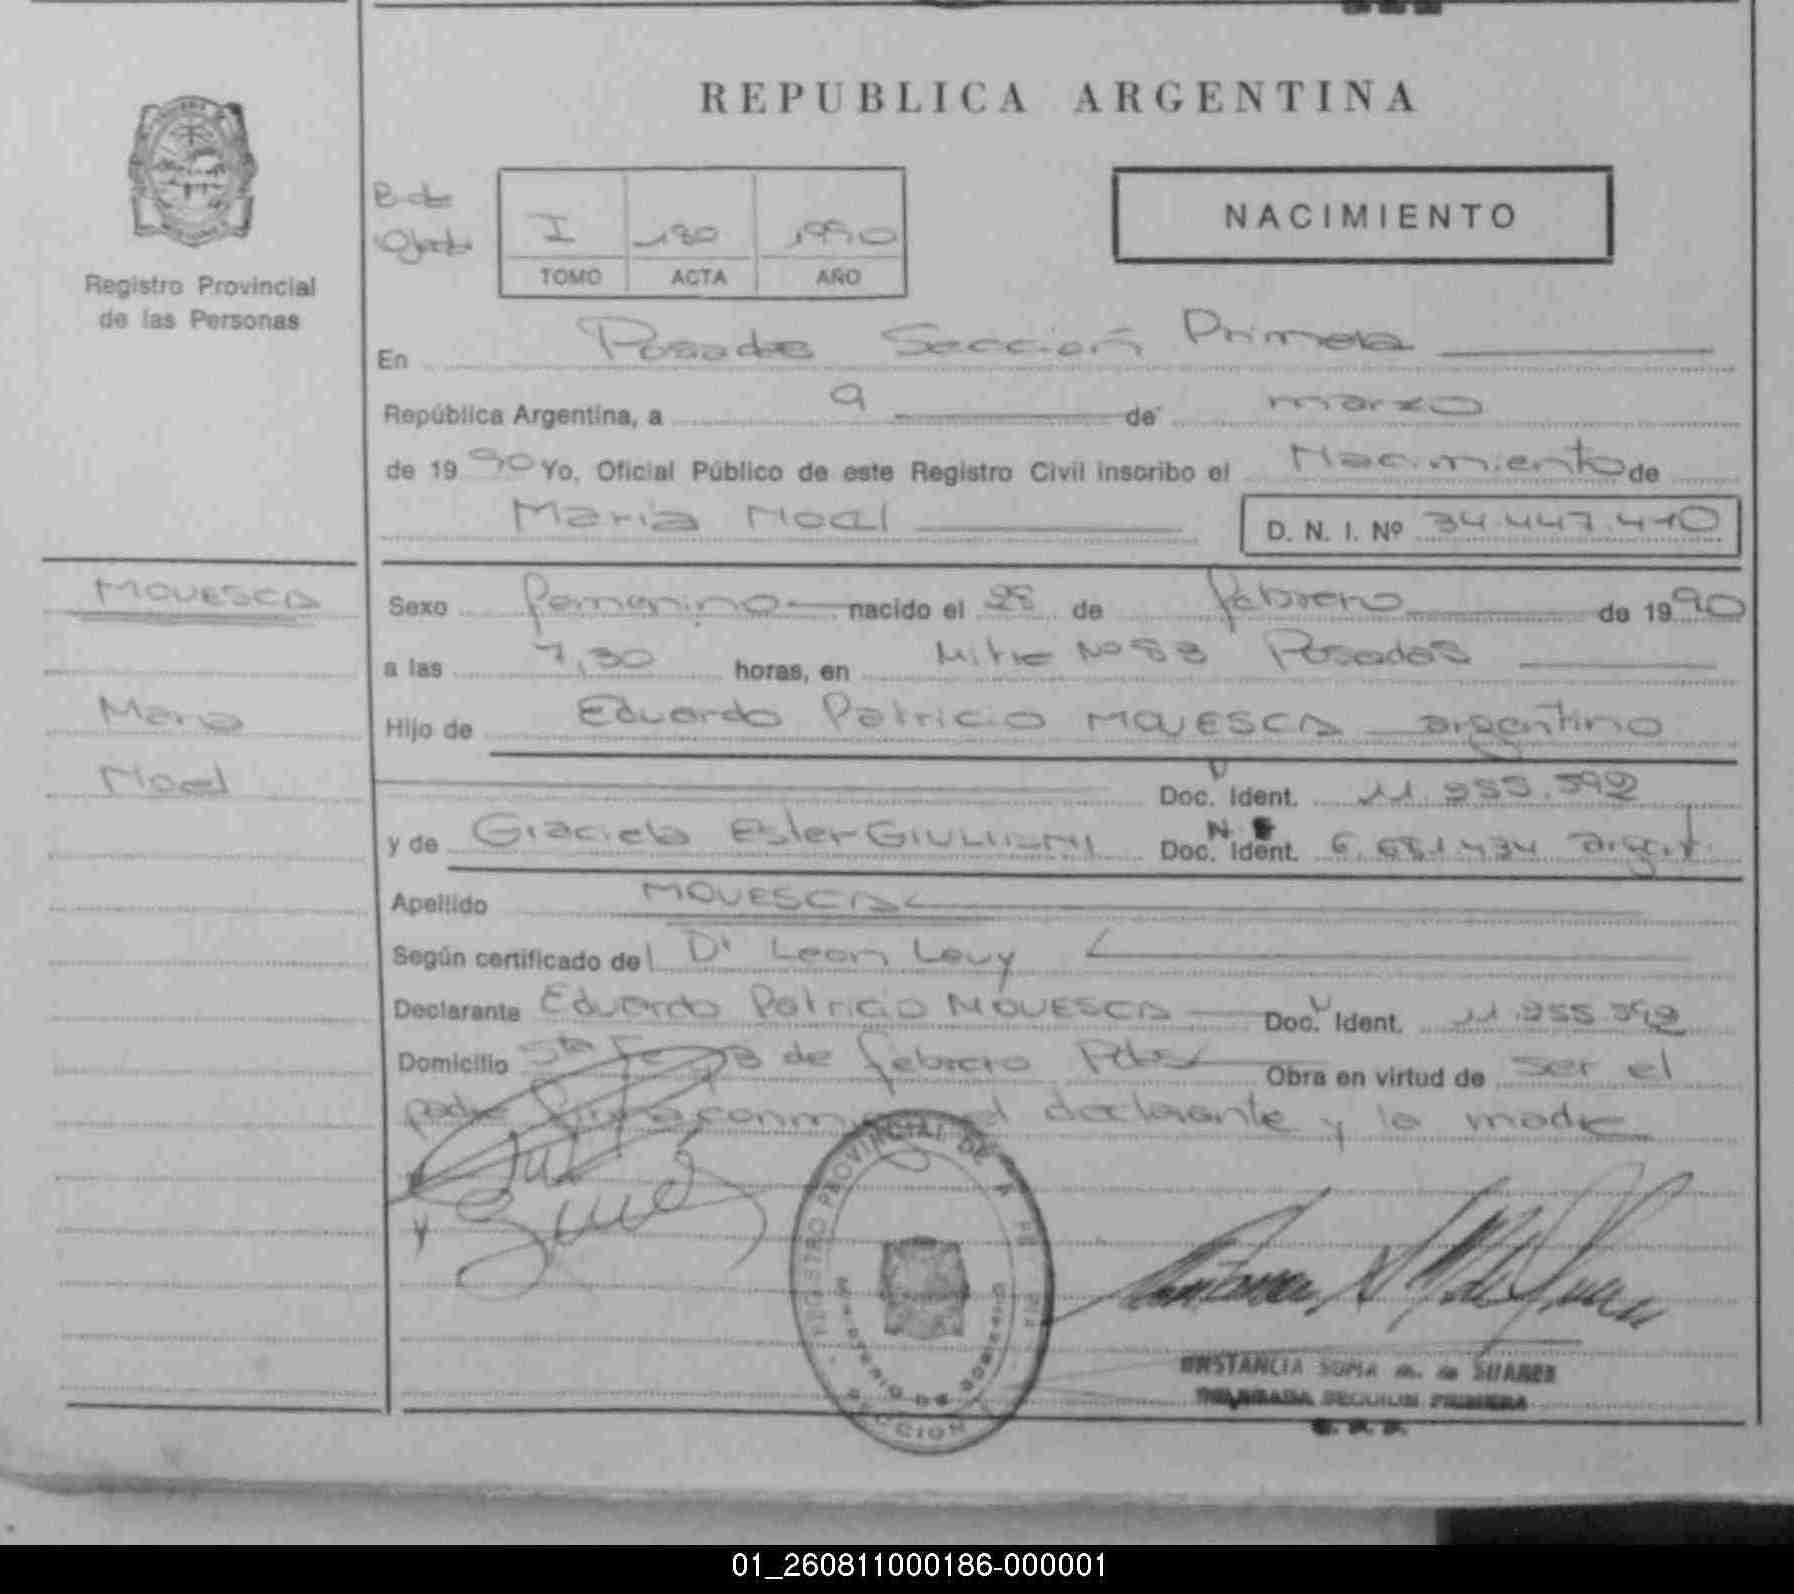 REPUBLICA ARGENTINA
Registro Provincial
de las Personas
I 180 1990
TOMO ACTA AÑO
NACIMIENTO
En Posadas Sección Primera
República Argentina, a 9 de marzo
de 1990 Yo, Oficial Público de este Registro Civil inscribo el Nacimiento de
Maria Noel D. N. I. Nº 34.447.410
MOVESCA
Maria
Noel
Sexo femenino nacido el 28 de febrero de 1990
a las 7,30 horas, en Mitre Nº 83 Posadas
Hijo de Eduardo Patricio MOVESCA argentino
Doc. Ident. 11.955.592
y de Graciela Ester GIULIANI Doc. Ident. 6.681.434 argent.
Apellido MOVESCA
Según certificado del Dr Leon Levy
Declarante Eduardo Patricio MOVESCA Doc. Ident. 11.955.592
Domicilio Sta Fe y 3 de febrero Pdas Obra en virtud de ser el
padre firma conmigo el declarante y la madre
REGISTRO PROVINCIAL DE LAS
MINISTERIO DE GOBIERNO
SECCION
CONSTANCIA SOFIA M. de SUAREZ
DELEGADA SECCION PRIMERA
01_260811000186-000001